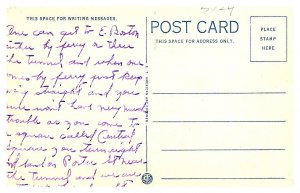 5/24
THIS SPACE FOR WRITING MESSAGES.
POST CARD
THIS SPACE FOR ADDRESS ONLY.
PLACE
STAMP
HERE
One can get to E. Boston
either by ferry or thru
the tunnel and when one
comes by ferry just keep
straight and you
won't have very much
trouble as you come to
a square called Central
Square you turn right
on Porter St near
the tunnel and we are